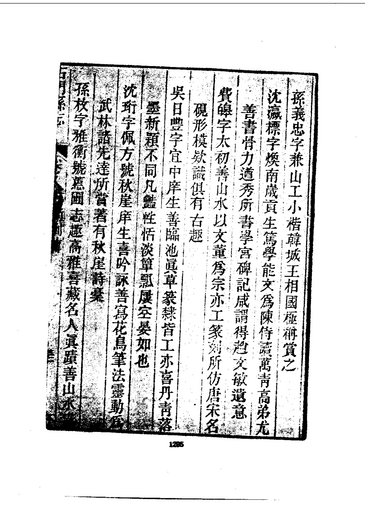 孫義忠字兼山工小楷韓城王相國極稱賞之
沈瀛標字煥南歲貢生篤學能文為陳侍讀萬青高弟尤
善書骨力遒秀所書學宮碑記咸謂得趙文敏遺意
費皞字太初善山水以文董為宗亦工篆刻所仿唐宋名
硯形模欵識俱有古趣
吳日豐字宜中庠生善臨池眞草篆隸皆工亦喜丹靑落
墨新穎不同凡豔性恬淡簞瓢屢空晏如也
沈珩字佩方號秋崖庠生喜吟詠善寫花鳥筆法靈動為
武林諸先達所賞著有秋崖詩稾
孫枚字雅衡號蕙圃志趣高雅喜藏名人眞蹟善山水
1295